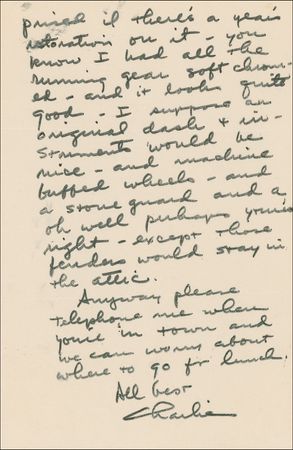 prised if there's a year's
restoration on it - you
know I had all the
running gear soft chrom-
ed - and it looks quite
good - I suppose an
original dash & in-
struments would be
nice - and machine
buffed wheels - and
a stone guard and a
oh well perhaps you're
right - except those
fenders would stay in
the attic.
Anyway please
telephone me when
you're in town and
we can worry about
where to go for lunch.
All best
Charlie